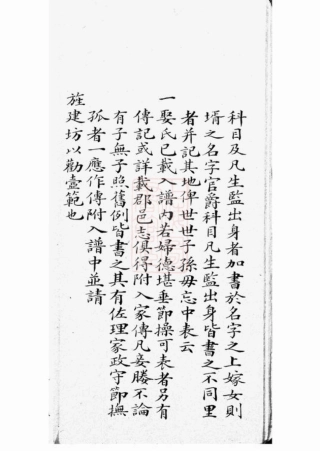 科目及凡生監出身者加書於名字之上嫁女則
壻之名字官爵科目凡生監出身皆書之不同里
者并記其地俾世世子孫毋忘中表云
一娶氏已載入譜內若婦德堪垂節操可表者另有
傳記或詳載郡邑志俱得附入家傳凡妾媵不論
有子無子照舊例皆書之其有佐理家政守節撫
孤者一應作傳附入譜中並請
旌建坊以勸壼範也